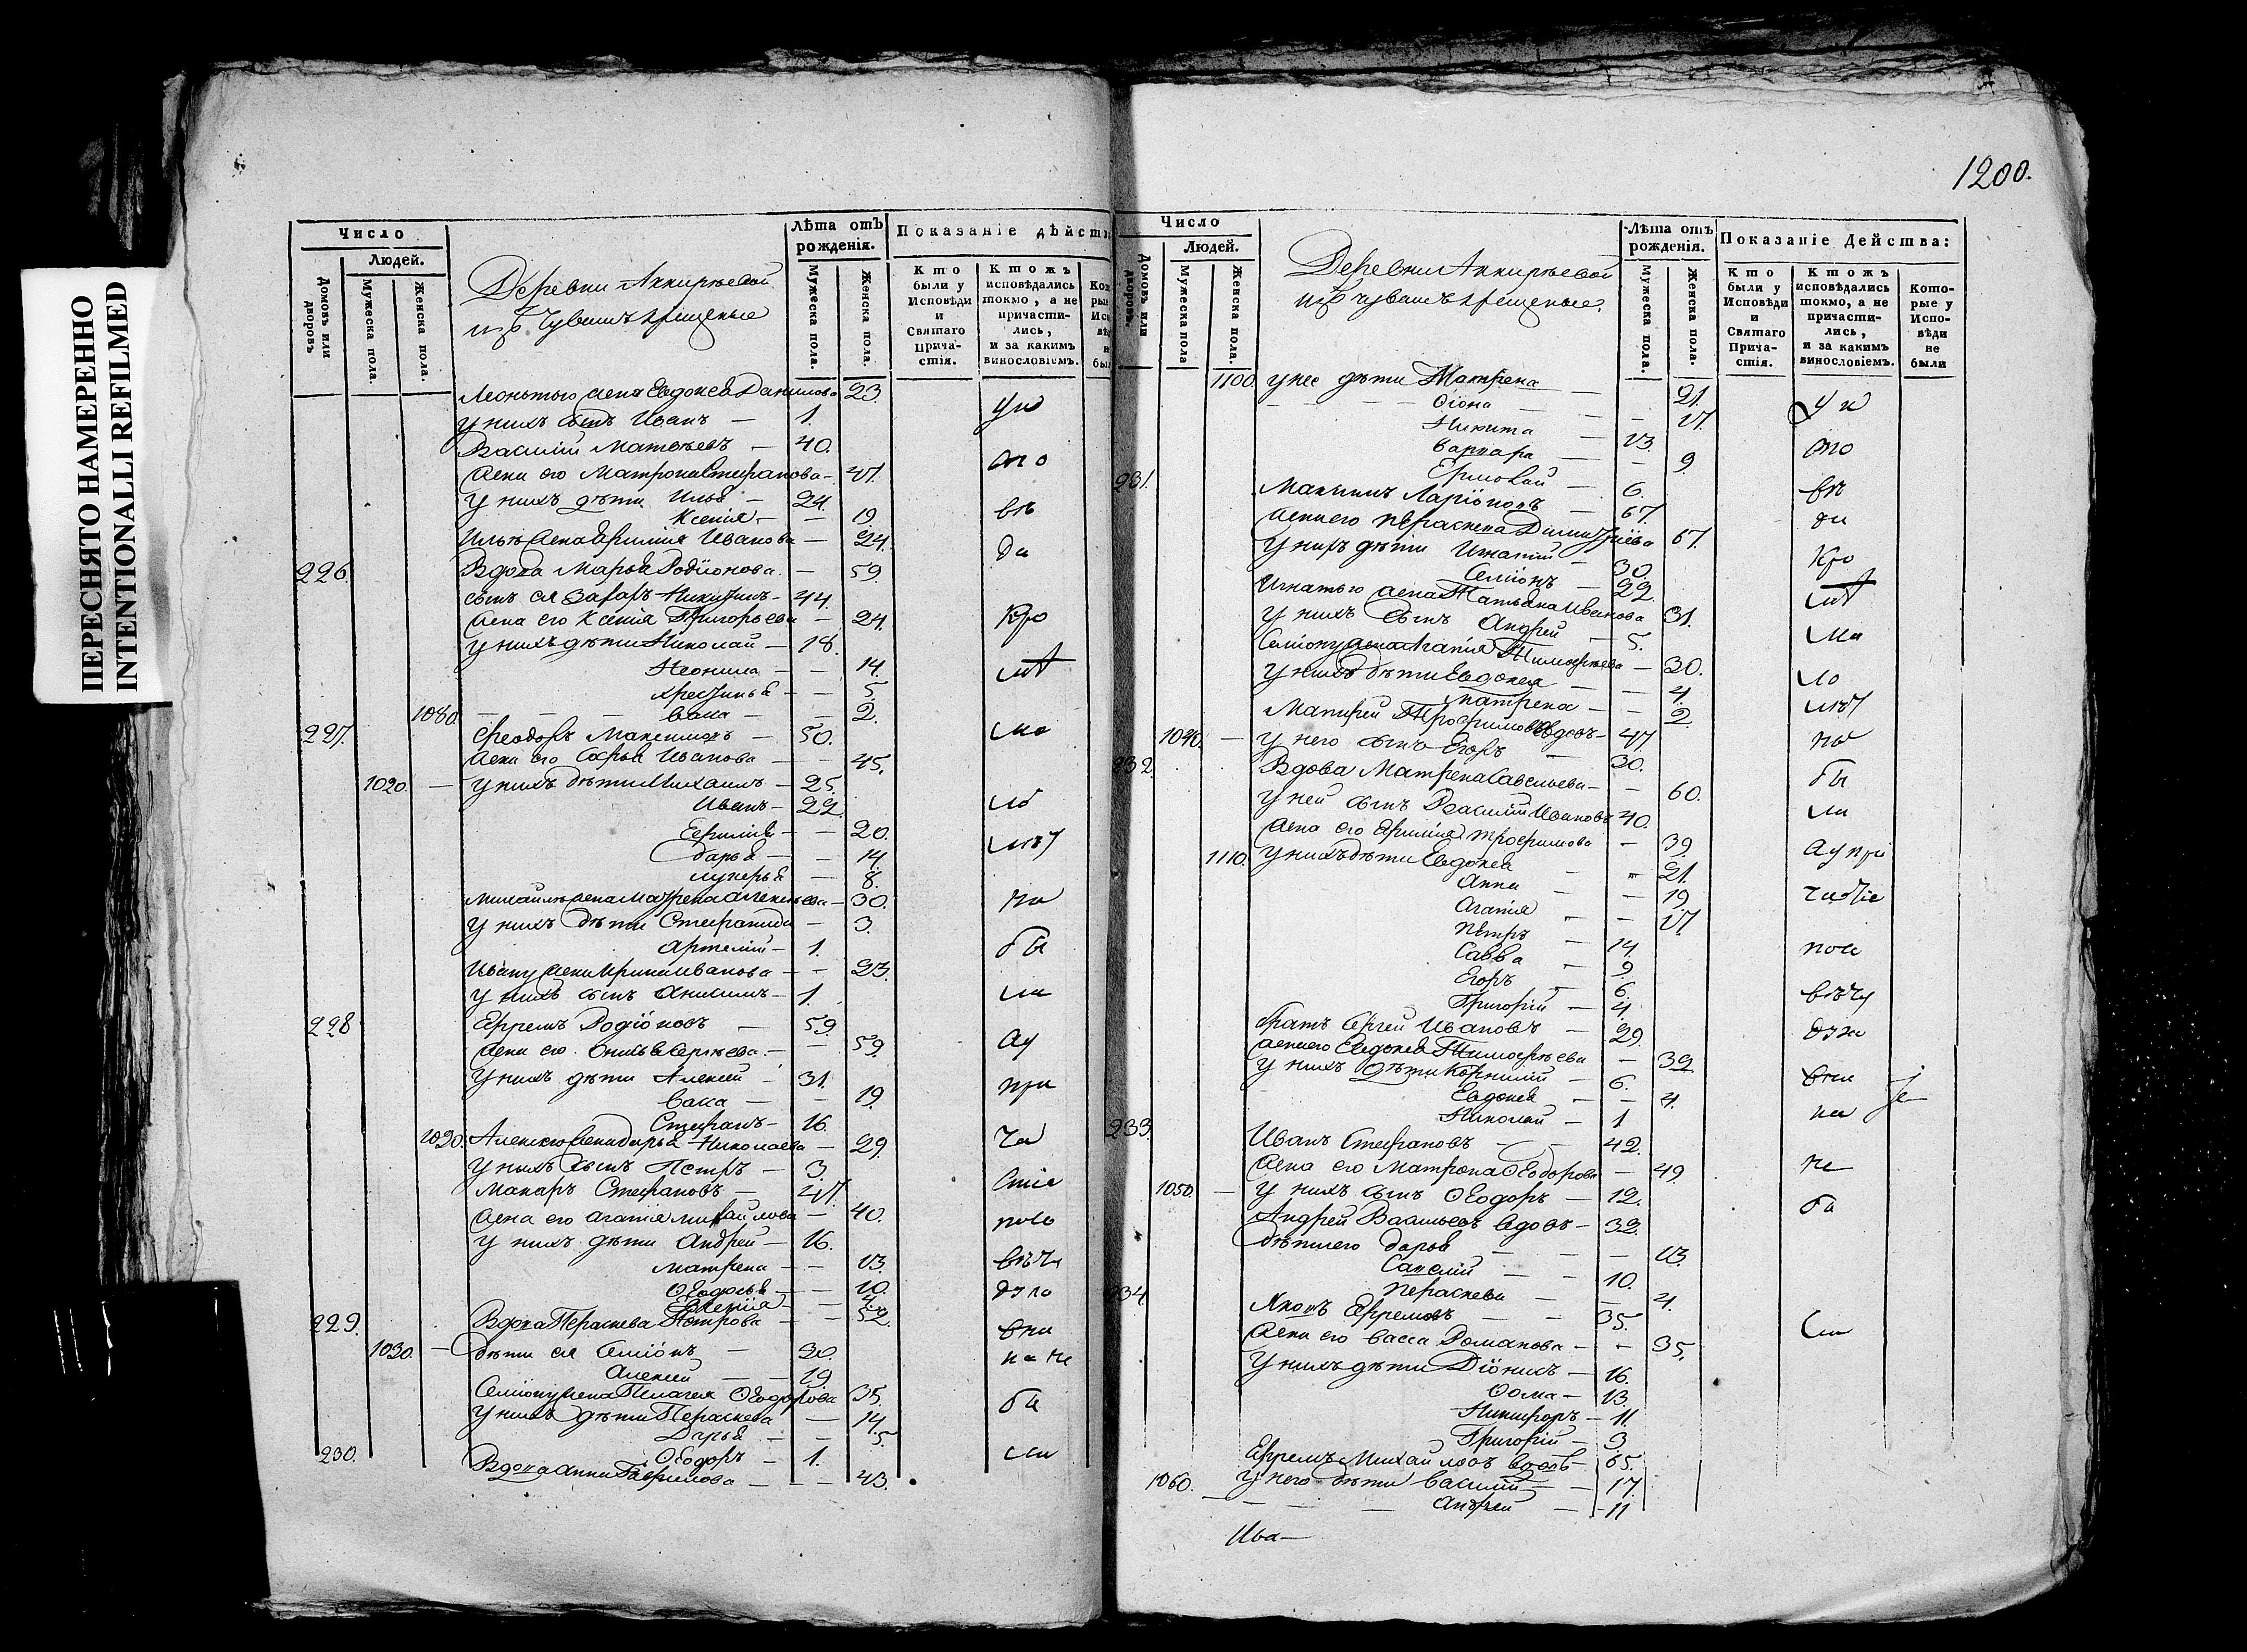 ПЕРЕСНЯТО НАМЕРЕННО
INTENTIONALLI REFILMED
1200.
Число
Людей.
Домовъ или дворовъ
Мужеска пола.
Женска пола.
Деревни Аккирѣевой
изъ Чувашъ крещеные
Лѣта отъ рожденія.
Мужеска пола.
Женска пола.
Показаніе дѣйст
Кто были у Исповѣди и Святаго Прича-стія.
Ктожъ исповѣдались токмо, а не причасти-лись, и за какимъ винословіемъ.
Леонтьего жена Евдокея Данилова 23.
у нихъ сынъ Иванъ — 1.
Василій Матвѣевъ — 40.
жена его Матрона Стефанова — 47.
у нихъ дѣти Илья — 24.
Ксенія — 19.
Ильѣ жена Ефимія Иванова — 24.
226. Вдова Марья Родіонова — 59.
сынъ ея Захаръ Никитинъ — 44.
жена его Ксенія Григорьева — 24.
у нихъ дѣти Николай — 18.
Неонила — 14.
Христинья — 5.
1080. Васса — 2.
227. Феодоръ Максимовъ — 50.
жена его Софья Иванова — 45.
1020. у нихъ дѣти Михаилъ — 25.
Иванъ — 22.
Ефимія — 20.
Дарья — 14.
Лукерья — 8.
Михайлѣ жена Матрена Алексѣева — 30.
у нихъ дѣти Стефанида — 3.
Артемій — 1.
Ивану жена Ирина Иванова — 23.
у нихъ сынъ Анисимъ — 1.
228. Ефремъ Родіоновъ — 59.
жена его Сергѣева — 59.
у нихъ дѣти Алексей — 31.
Васса — 19.
Стефанъ — 16.
1090. Алексею жена Дарья Николаева — 29.
у нихъ сынъ Петръ — 3.
Макаръ Стефановъ — 47.
жена его Агафія Михайлова — 40.
у нихъ дѣти Андрей — 16.
Матрена — 13.
Ѳеодосья — 10.
Ксенія
229. Вдова Параскева Петрова — 52.
1030. дѣти ея Семіонъ — 30.
Алексей — 19
Семіону жена Пелагея Ѳеодорова 35.
у нихъ дѣти Параскева — 14.
Дарья — 5.
Ѳеодоръ — 1.
230. Вдова Анна Гаврилова — 43.
Число
Людей.
Домовъ или дворовъ.
Мужеска пола
Женска пола.
Деревни Аккирѣевой
изъ чувашъ крещеные.
Лѣта отъ рожденія.
Мужеска пола.
Женска пола.
Показаніе Дейстsва:
Кто были у Исповѣди и Святаго Прича-стія.
Ктожъ исповѣдались токмо, а не причасти-лись, и за какимъ винословіемъ.
Кото-рые у Испо-вѣди не были
1100. у нее дѣти Матрена — 21.
Ѳіона — 17.
Никита — 13.
Варвара — 9.
Ермолай — 6.
231. Максимъ Ларіоновъ — 67.
жена его Параскева Димитріева 67.
у нихъ дѣти Игнатій — 30.
Семіонъ — 22.
Игнатью жена Татьяна Иванова 31.
у нихъ сынъ Андрей — 5.
Семіону жена Агафія Тимофѣева — 30.
у нихъ дѣти Евдокея — 4.
Матрена — 2.
Матфей Трофимовъ вдовъ — 47.
1040. у него сынъ Егоръ — 30.
232. Вдова Матрена Савельева — 60.
у ней сынъ Василій Ивановъ 40.
жена его Ефимія Трофимова — 39.
1110. у нихъ дѣти Евдокея — 21.
Анна — 19.
Агафія — 17.
Петръ — 14.
Савва — 9.
Егоръ — 6.
Григорій — 4.
братъ Сергей Ивановъ — 29.
жена его Евдокея Тимофѣева — 39.
у нихъ дѣти Корнилій — 6.
Евдокея — 4.
Николай — 1
233. Иванъ Стефановъ — 42.
жена его Матрона Ѳеодорова — 49.
1050. у нихъ сынъ Ѳеодоръ — 12.
Андрей Васильевъ вдовъ — 32.
дѣти его Дарья — 13.
Савелій — 10.
Параскева — 4.
234. Яковъ Ефремовъ — 35.
жена его Васса Романова — 35.
у нихъ дѣти Діонисъ — 16.
Ѳома — 13.
Никифоръ — 11.
Григорій — 3.
Ефремъ Михайловъ вдовъ — 65.
1060. у него дѣти Василій — 17.
Андрей — 11
Ива—